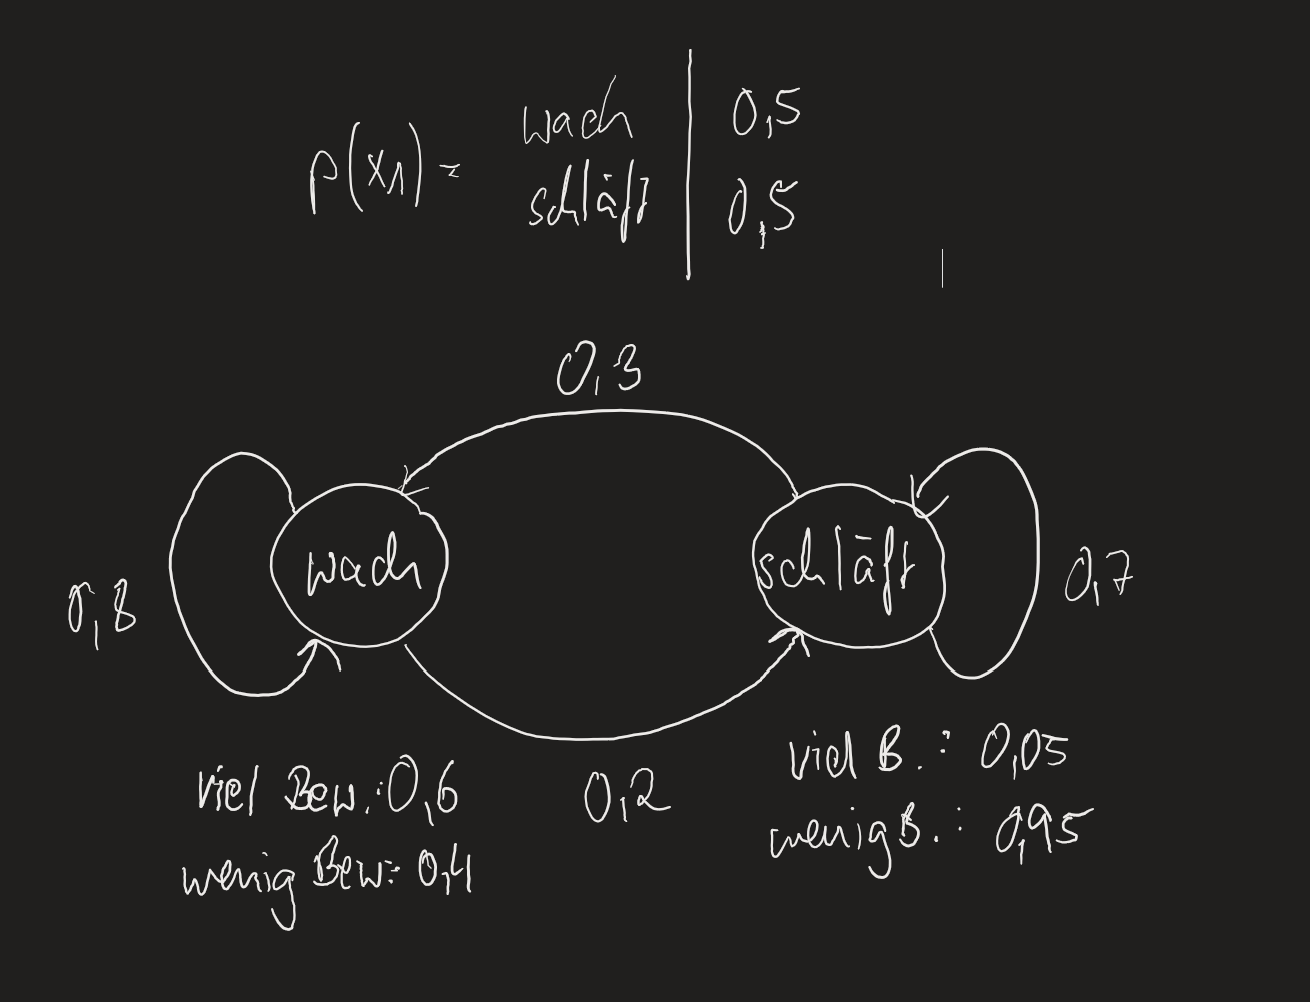 p(x1) = wach | 0,5
schläft | 0,5
0,3
wach
schläft
0,8
0,7
0,2
viel Bew.: 0,6
wenig Bew: 0,4
viel B.: 0,05
wenig B.: 0,95